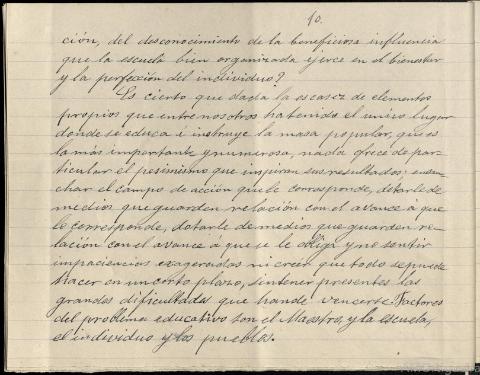 10.
ción, del desconocimiento de la beneficiosa influencia
que la escuela bien organizada ejerce en el bienestar
y la perfección del individuo?
Es cierto que dada la escasez de elementos
propios que entre nosotros ha tenido el unico lugar
donde se educa é instruye la masa popular, que es
la más importante y numerosa, nada ofrece de par-
ticular el pesimismo que inspiran sus resultados; ensan-
char el campo de acción que le corresponde, dotarle de
medios que guarden relación con el avance á que
le corresponde, dotarle de medios que guarden re-
lación con el avance á que se le obliga y no sentir
impaciencias exageradas ni creer que todo se puede
hacer en un corto plazo, sin tener presentes las
grandes dificultades que han de vencerse. Factores
del problema educativo son el Maestro, y la escuela,
el individuo y los pueblos.